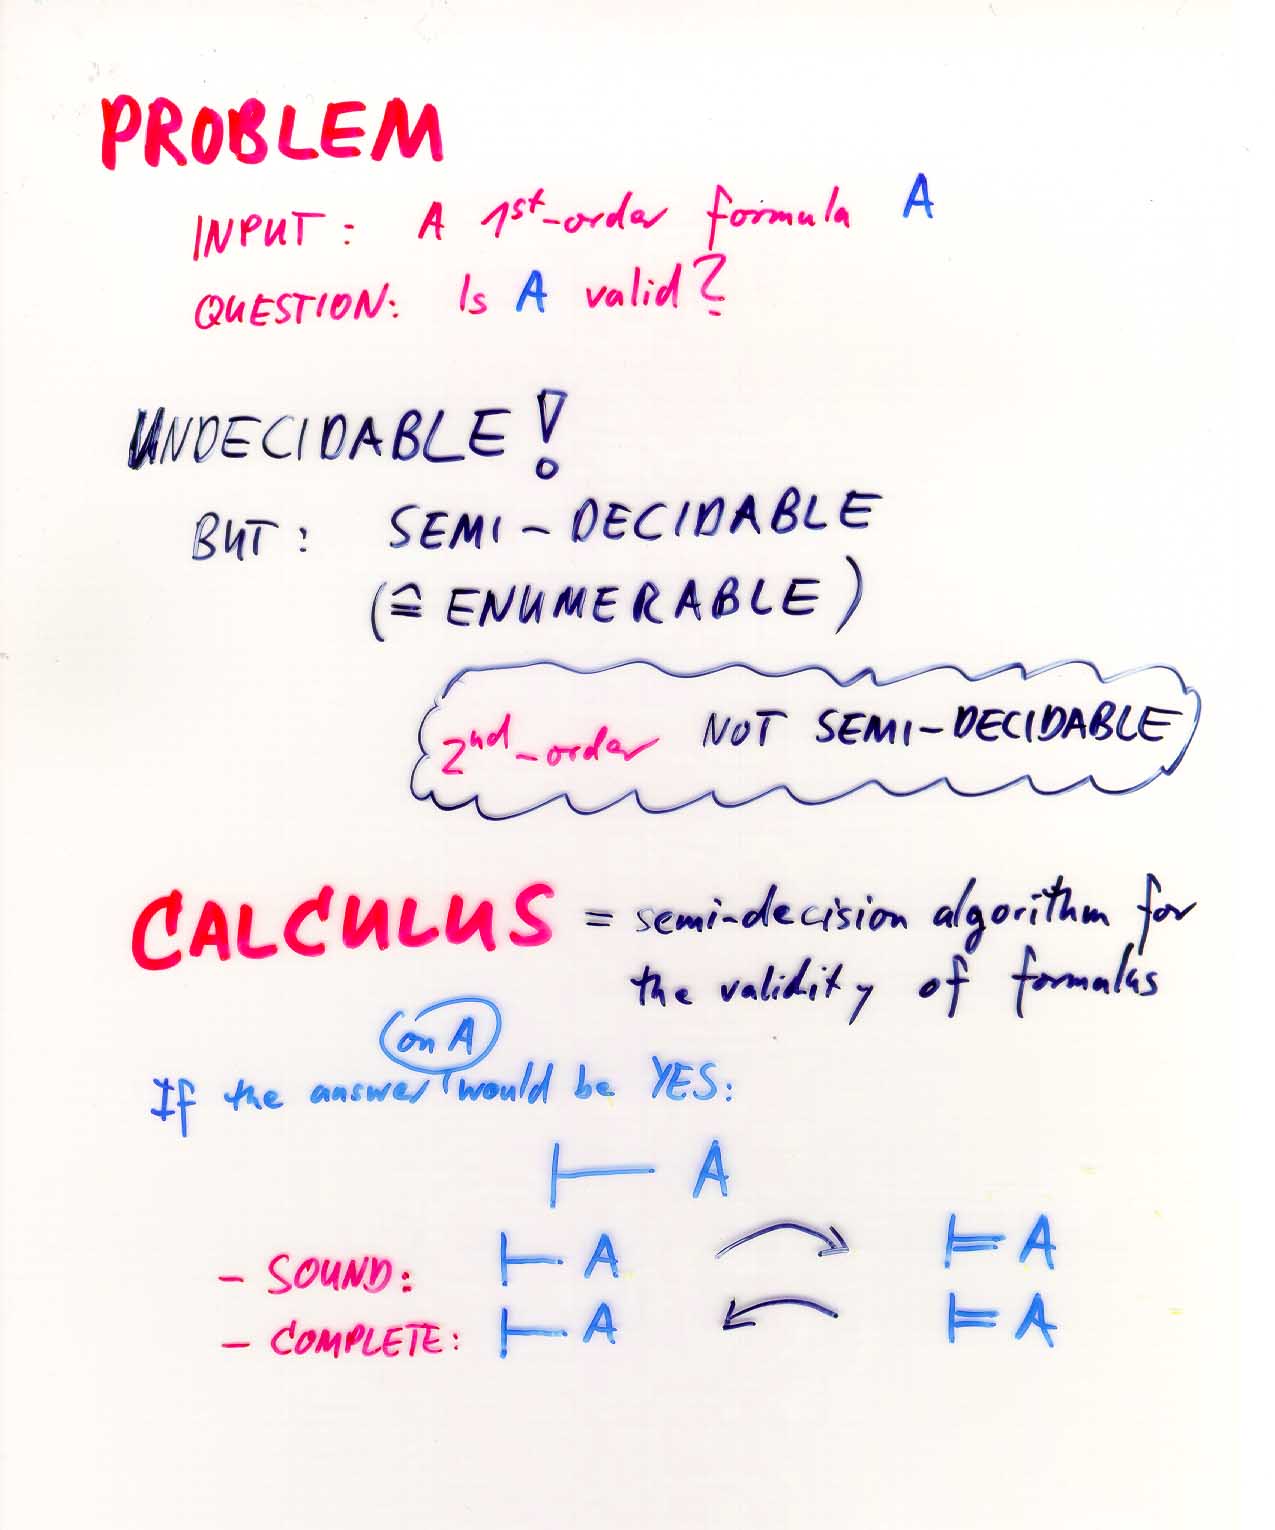 PROBLEM
INPUT: A 1st-order formula A
QUESTION: Is A valid?
UNDECIDABLE!
BUT: SEMI-DECIDABLE
(≙ ENUMERABLE)
2nd-order NOT SEMI-DECIDABLE
CALCULUS = semi-decision algorithm for
the validity of formulas
on A
If the answer would be YES:
⊢ A
- SOUND: ⊢ A ↷ ⊨ A
- COMPLETE: ⊢ A ↶ ⊨ A